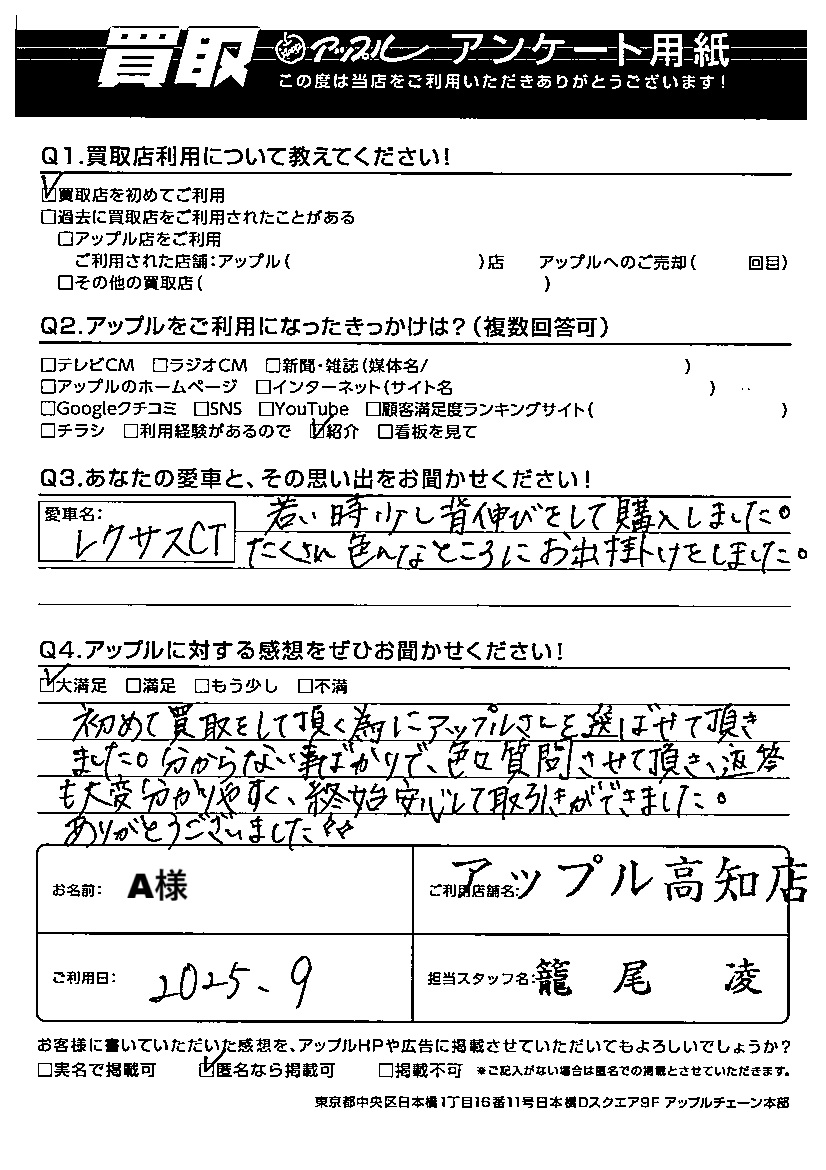 買取 アップル アンケート用紙
この度は当店をご利用いただきありがとうございます!
Q1.買取店利用について教えてください!
☑買取店を初めてご利用
□過去に買取店をご利用されたことがある
□アップル店をご利用
ご利用された店舗:アップル( )店 アップルへのご売却( 回目)
□その他の買取店( )
Q2.アップルをご利用になったきっかけは?(複数回答可)
□テレビCM □ラジオCM □新聞・雑誌(媒体名/ )
□アップルのホームページ □インターネット(サイト名 )
□Googleクチコミ □SNS □YouTube □顧客満足度ランキングサイト( )
□チラシ □利用経験があるので ☑紹介 □看板を見て
Q3.あなたの愛車と、その思い出をお聞かせください!
愛車名:
レクサスCT
若い時少し背伸びをして購入しました。
たくさん色んなところにお出掛けをしました。
Q4.アップルに対する感想をぜひお聞かせください!
☑大満足 □満足 □もう少し □不満
初めて買取をして頂く為にアップルさんを選ばせて頂き
ました。分からない事ばかりで、色々質問させて頂き、返答
も大変分かりやすく、終始安心して取引きができました。
ありがとうございました☆☆
お名前: A様 ご利用店舗名: アップル高知店
ご利用日: 2025、9 担当スタッフ名: 籠尾 凌
お客様に書いていただいた感想を、アップルHPや広告に掲載させていただいてもよろしいでしょうか?
□実名で掲載可 ☑匿名なら掲載可 □掲載不可 ※ご記入がない場合は匿名での掲載とさせていただきます。
東京都中央区日本橋1丁目16番11号日本橋Dスクエア9F アップルチェーン本部